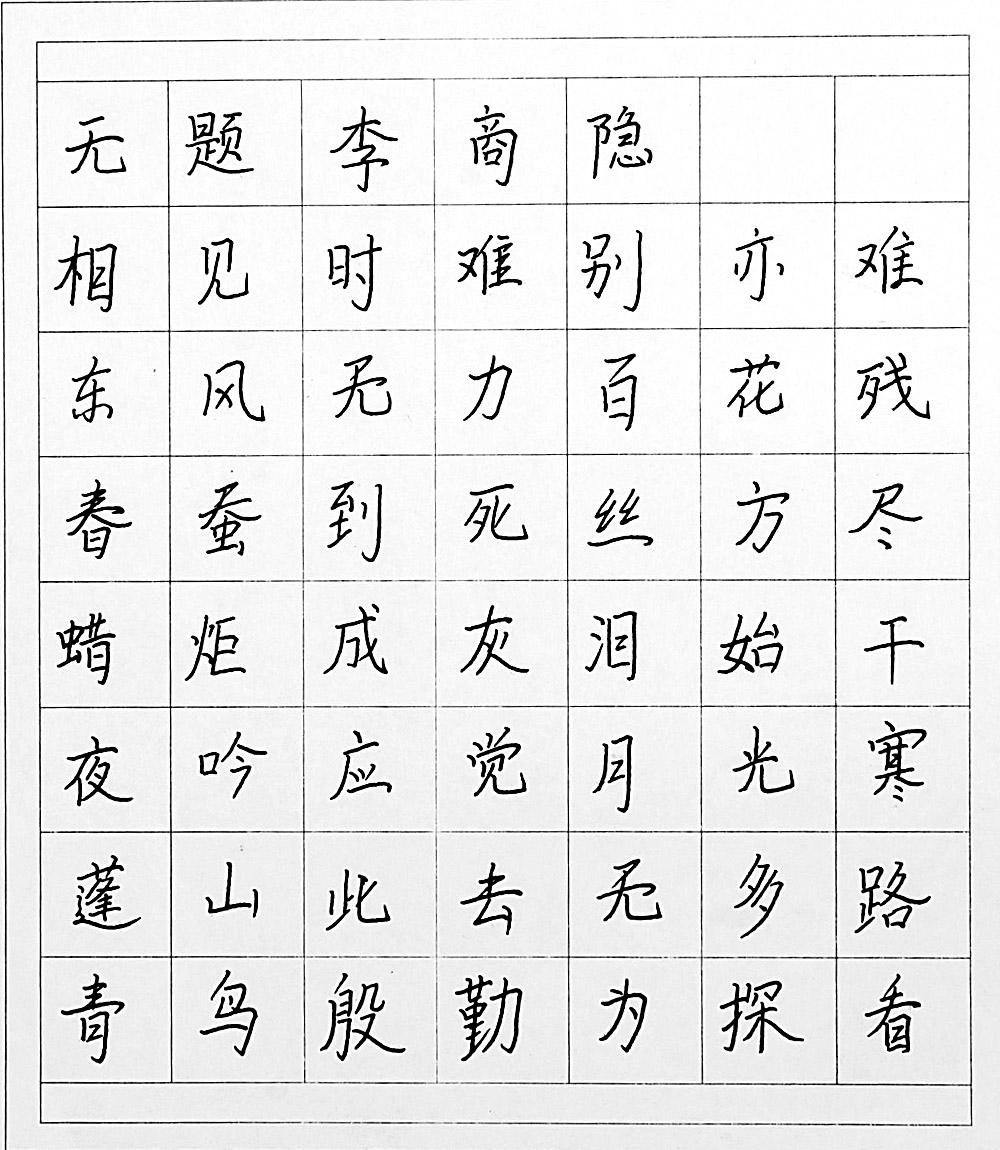 无题李商隐
相见时难别亦难
东风无力百花残
春蚕到死丝方尽
蜡炬成灰泪始干
夜吟应觉月光寒
蓬山此去无多路
青鸟殷勤为探看